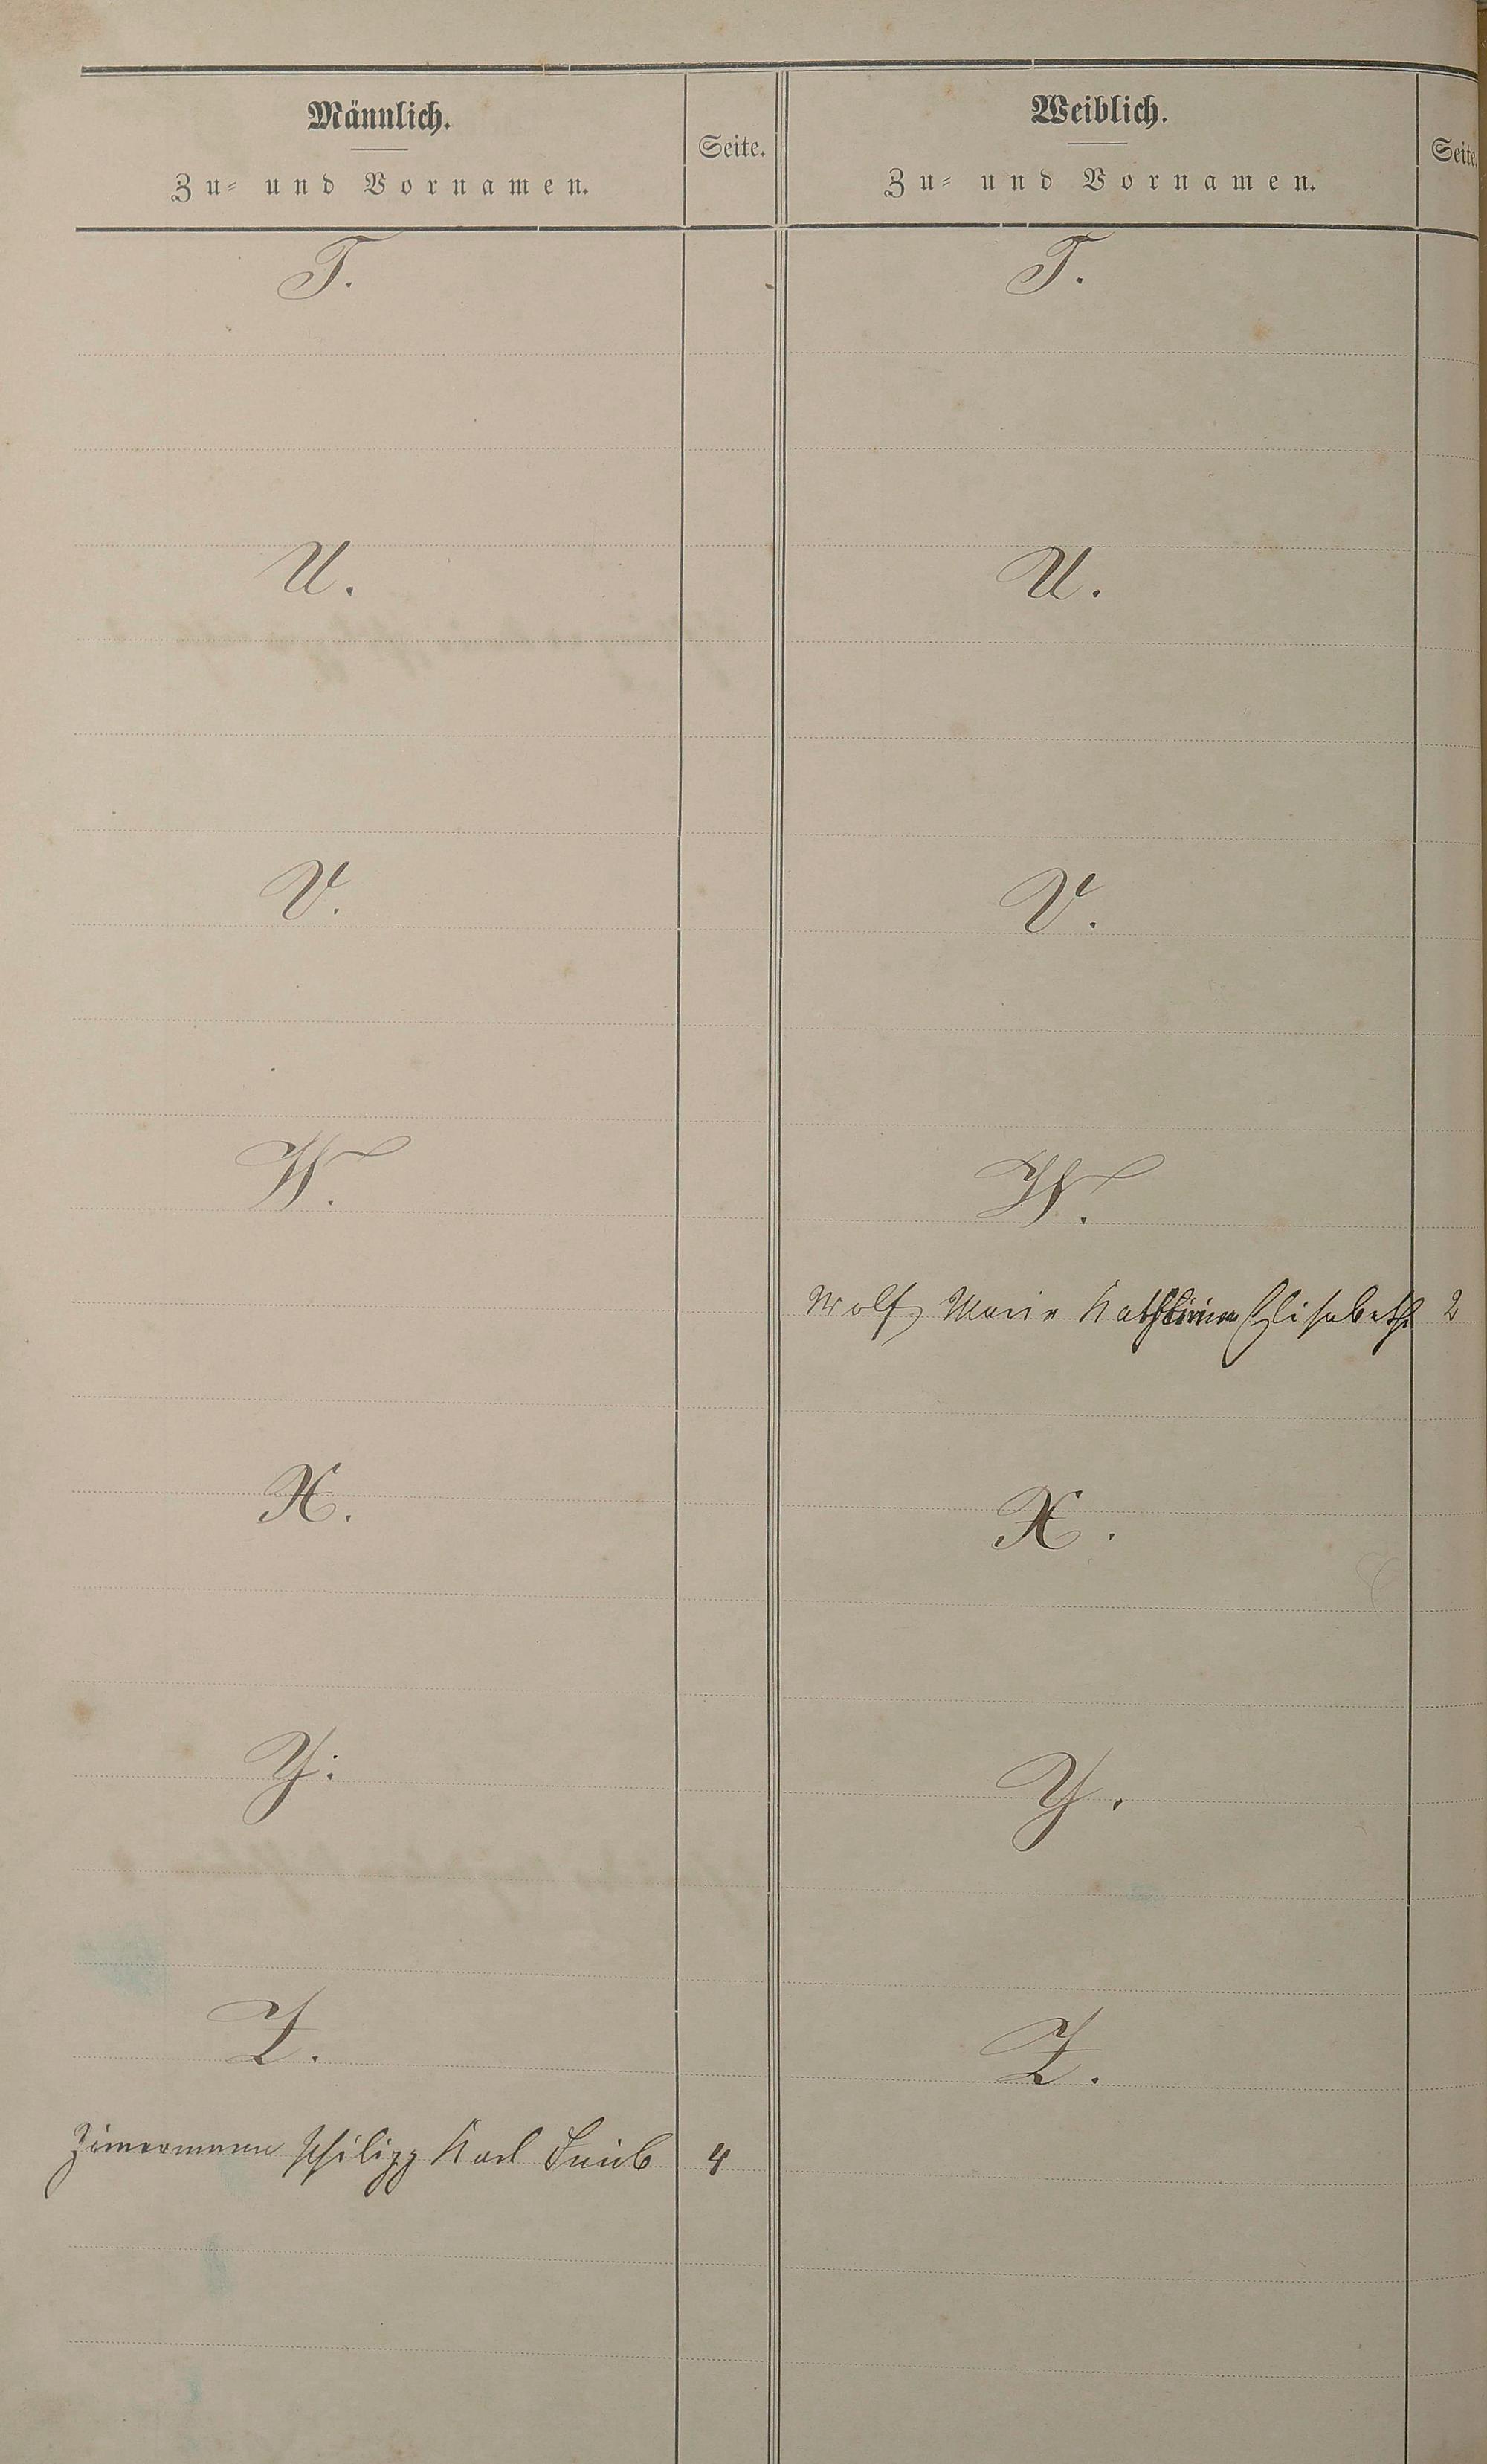 Männlich.
Zu= und Vornamen.
Seite.
T.
U.
V.
W.
X.
Y.
Z.
Zimmermann Philipp Karl 4
Weiblich.
Zu= und Vornamen.
Seite.
T.
U.
V.
W.
Wolf, Marie Katharina Elisabeth 2
X.
Y.
Z.